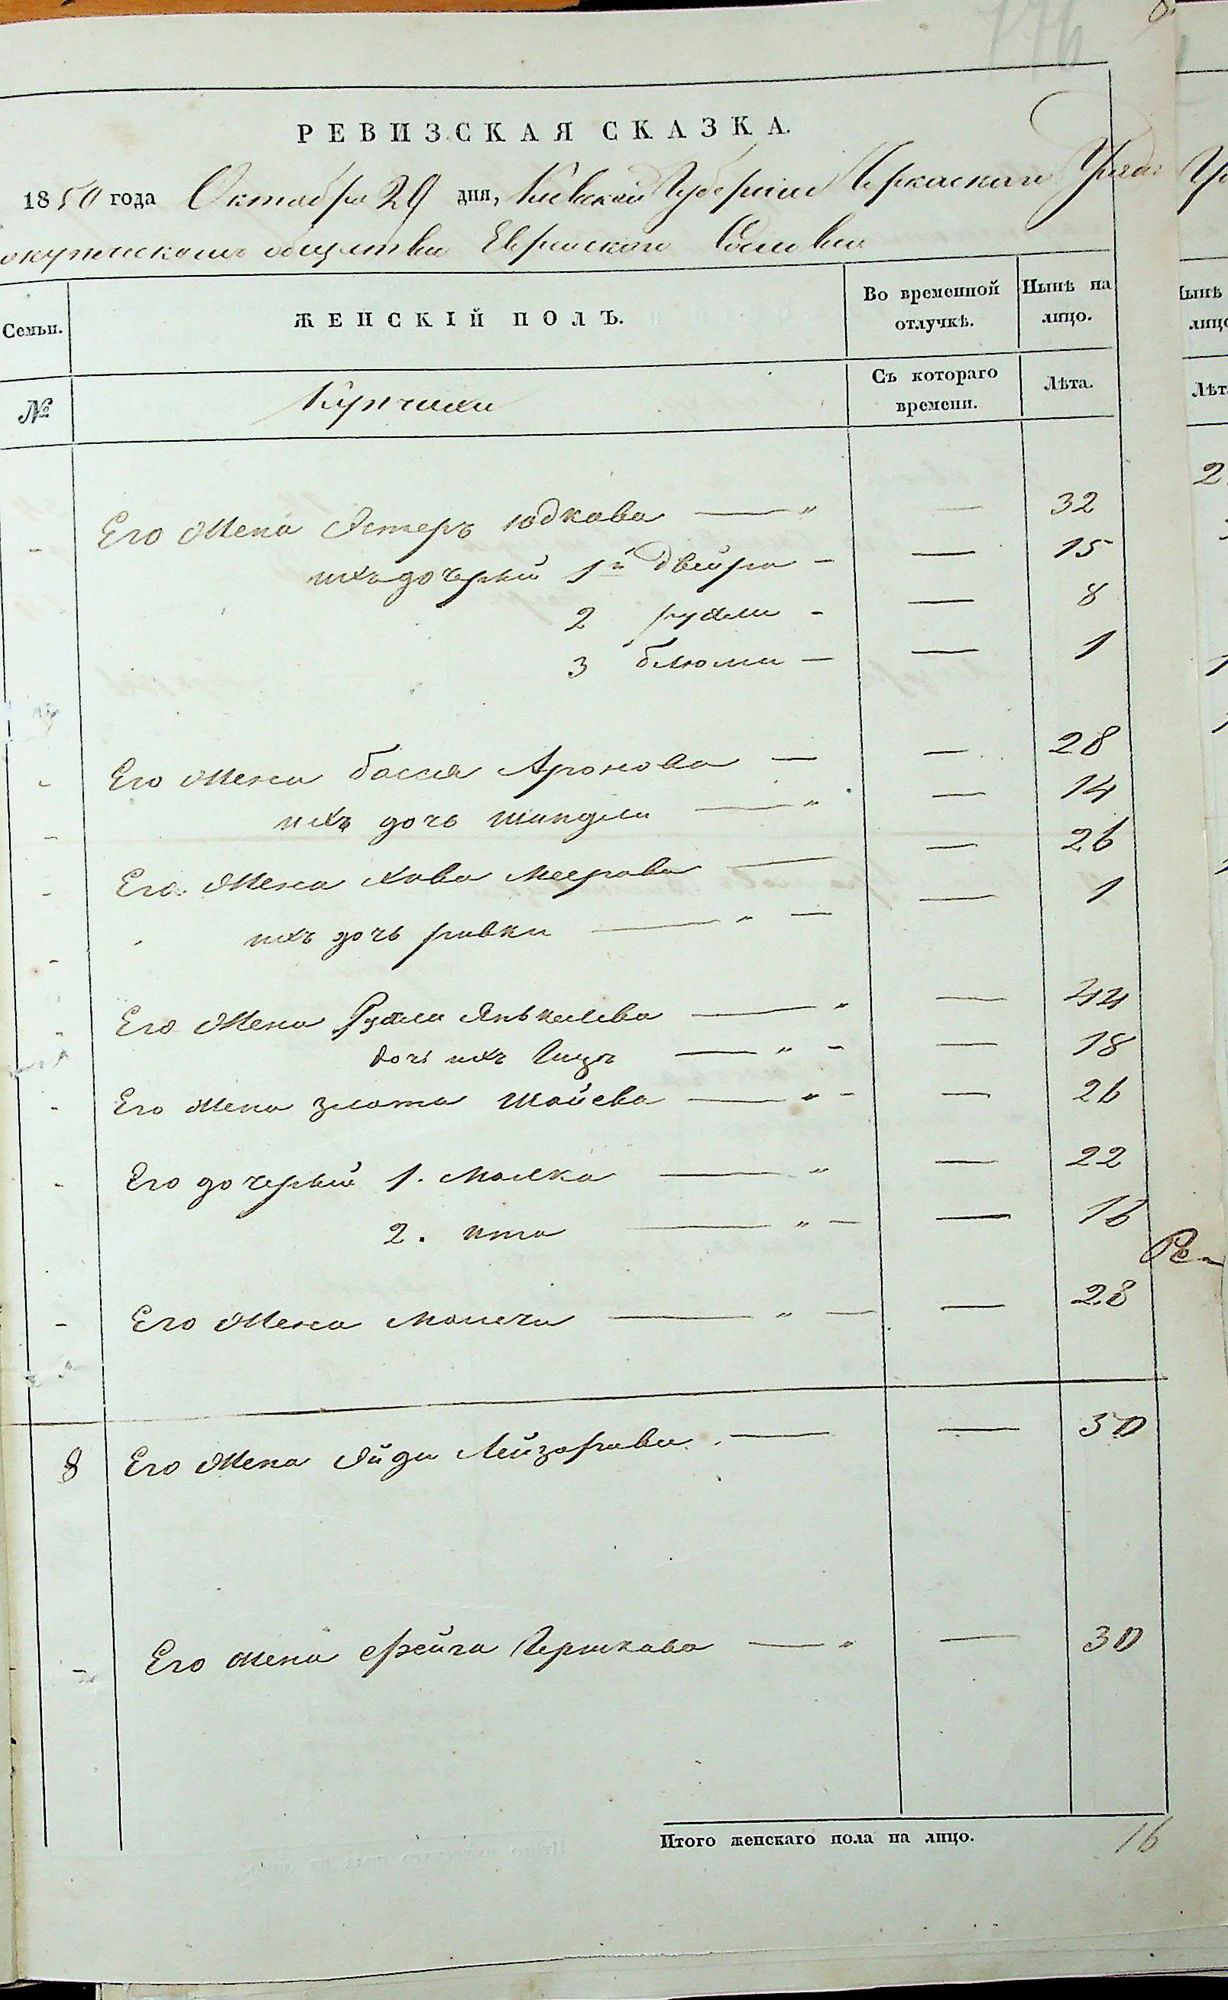 РЕВИЗСКАЯ СКАЗКА.
1850 года Октября 29 дня, Киевской Губернии Черкаскаго Уѣзда
обществѣ Еврейскаго Сословия
Семьи. ЖЕНСКІЙ ПОЛЪ. Во временной отлучкѣ. Нынѣ на лицо.
№ Купчихи Съ котораго времени. Лѣта.
Его Жена Эстеръ Юдкова — „ — 32
ихъ дочерѣй 1й Двейра — — 15
2 рухли — — 8
3 блюма — — 1
Его Жена бася Аронова — — 28
ихъ дочь шиндля — „ — 14
Его Жена Хава Меерова — — 26
ихъ дочь ривка — „ — — 1
Его Жена Рухля Янькелева — „ — 44
дочь ихъ — „ — — 18
Его Жена злата Шаиева — „ — — 26
Его дочерѣй 1. Малка — „ — 22
2. ита — „ — — 16
Его Жена — „ — — 28
8 Его Жена Лейзорова. — — 50
- Его жена Фейга Гершкова — „ — 30
Итого женскаго пола на лицо. 16